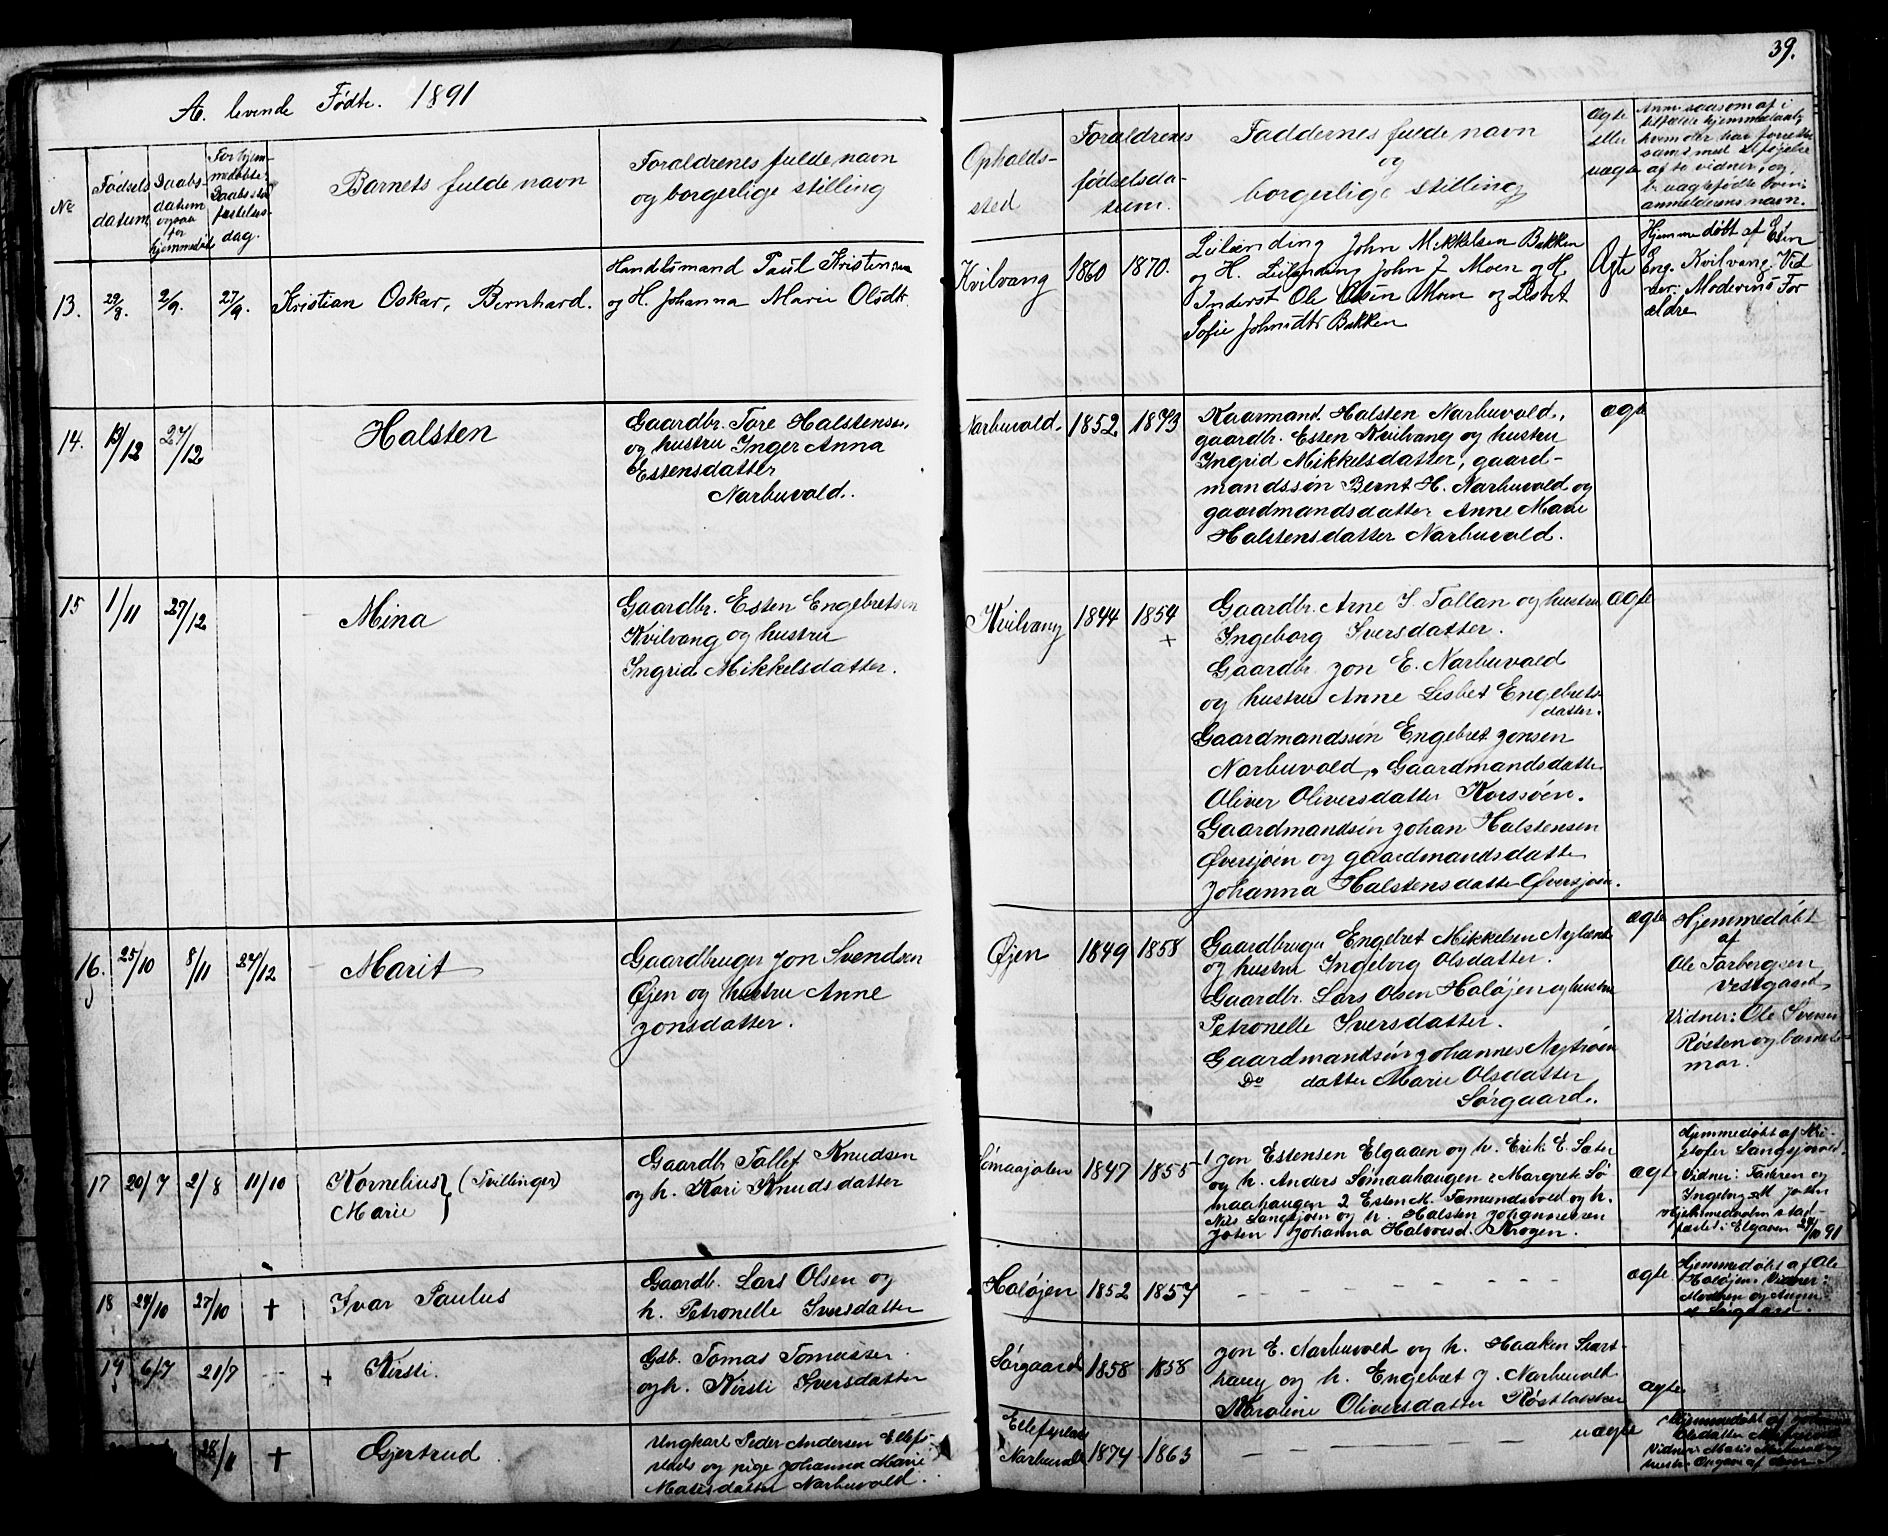 39.
A. levende Födte. 1891
No
Fødsels
datum
Daabs-
datum
ogsaa
for
hjemmedøbt
For hjem-
medøbte:
Daabs sta
festelses-
dag.
Barnets fulde navn
Forældrenes fulde navn
og borgerlige stilling
Opholds-
sted
Forældrenes
fødselsda-
tum.
Faddernes fulde navn
og
borgerlige stilling
ægte
eller
uægte
Anm. saasom af i
tilfælde hjemmedaab,
hvem der har forrettet
samt med tilføielse
af to vidner, og,
b. uægtefødte børn:
anmelderens navn.
13. 29/8. 2/9. 27/9. Kristian Oskar, Bernhard.
Handelsmand Paul Kristensen
og H. Johanna Marie Olsdtr.
Kvilvang 1860 1870.
Leilænding John Mikkelsen Bakken
og H. Leilænding John J Moen og H.
Inderst Ole Olsen Moen og Lisbet
Sofie Johnsdtr Bakken
Ægte
Hjemmedøbt af Esten
Eng. Kvilvang. Vid
ner: Moderens For
ældre
14. 13/12 27/12 Halsten
Gaardbr. Tore Halstensen
og hustru Inger Anna
Estensdatter
Narbuvold.
Narbuvold. 1852 1873
Kaarmand Halsten Narbuvold,
gaardbr. Esten Kvilvang og hustru
Ingrid Mikkelsdatter, gaard-
mandssön Bernt H. Narbuvold og
gaardmandsdatter Anne Marie
Halstensdatter Narbuvold.
ægte
15 1/11 27/12 Mina
Gaardbr. Esten Engebretsen
Kvilvang og hustru
Ingrid Mikkelsdatter.
Kvilvang 1844 1854
+
Gaardbr. Arne I. Tallan og hustru
Ingeborg Iversdatter.
Gaardbr. Jon E. Narbuvold
og hustru Anne Lisbet Engebrets-
datter.
Gaardmandssön Engebret Jonsen
Narbuvold, Gaardmandsdatter
Oliver Oliversdatter Korssöen.
Gaardmandsön Johan Halstensen
Øversjöen og gaardmandsdatter
Johanna Halstensdatter Øversjöen.
ægte
16. 25/10 8/11 27/12 Marit
Gaardbruger Jon Svendsen
Øjen og hustru Anne
Jonsdatter.
Øjen 1849 1858
Gaardbruger Engebret Mikkelsen Nyland
og hustru Ingeborg Olsdatter.
Gaardbr. Lars Olsen Haløjen og hustru
Petronelle Iversdatter.
Gaardmandsön Johannes Nytröen
Do datter Marie Olsdatter
Sörgaard.
ægte
Hjemmedöbt
af
Ole Tarbergsen
Vestgaard,
Vidner: Ole Svensen
Røsten og barnets
mor.
17 20/7 2/8 11/10 Kornelius } (Tvillinger)
Marie
Gaardbr Tollef Knudsen
og h. Kari Knudsdatter
Sömaajoten 1847 1855
1 Jon Estensen Elgaaen og h. Erik E. Sæter
og h. Anders Sömaahaugen : Margrete Sö
maahaugen 2 Esten M. Fæmundsvold og h.
Nils Langsjöen og h. Halsten Johannessen
Joten Johanna Halvorsd. Krogen.
ægte
Hjemmedöbt af Kri-
stofer Langsjövold.
Vidner: Faderen og
Ingeborg M Joten
Hjemmedaaben stad-
fæstet i Elgaaen 24/10 91
18 24/10 27/10 + Ivar Paulus
Gaardb. Lars Olsen og
h. Petronelle Iversdatter
Haløjen 1852 1857
- - - - - -
ægte
Hjemmedöbt af Ole
Haløjen. Vidner:
Modren og Anne
Sörgaard.
19 6/7 21/7 -- + Kirsti.
Gdb. Tomas Tomassen
og h. Kirsti Iversdatter
Sörgaard 1858 1858
Jon E. Narbuvold og h. Haaken Svart-
haug og h. Engebret J. Narbuvold
Karoline Oliversdatter
ægte
28/1 + Gjertrud
Ungkarl Peder Andersen Ellefs-
plads og pige Johanna Marie
Matisdatter Narbuvold.
Ellefsplads
Narbuvold 1874 1863
- - - - - -
uægte
Hjemmedöbt af
Vidner: Matis Narbuvold og